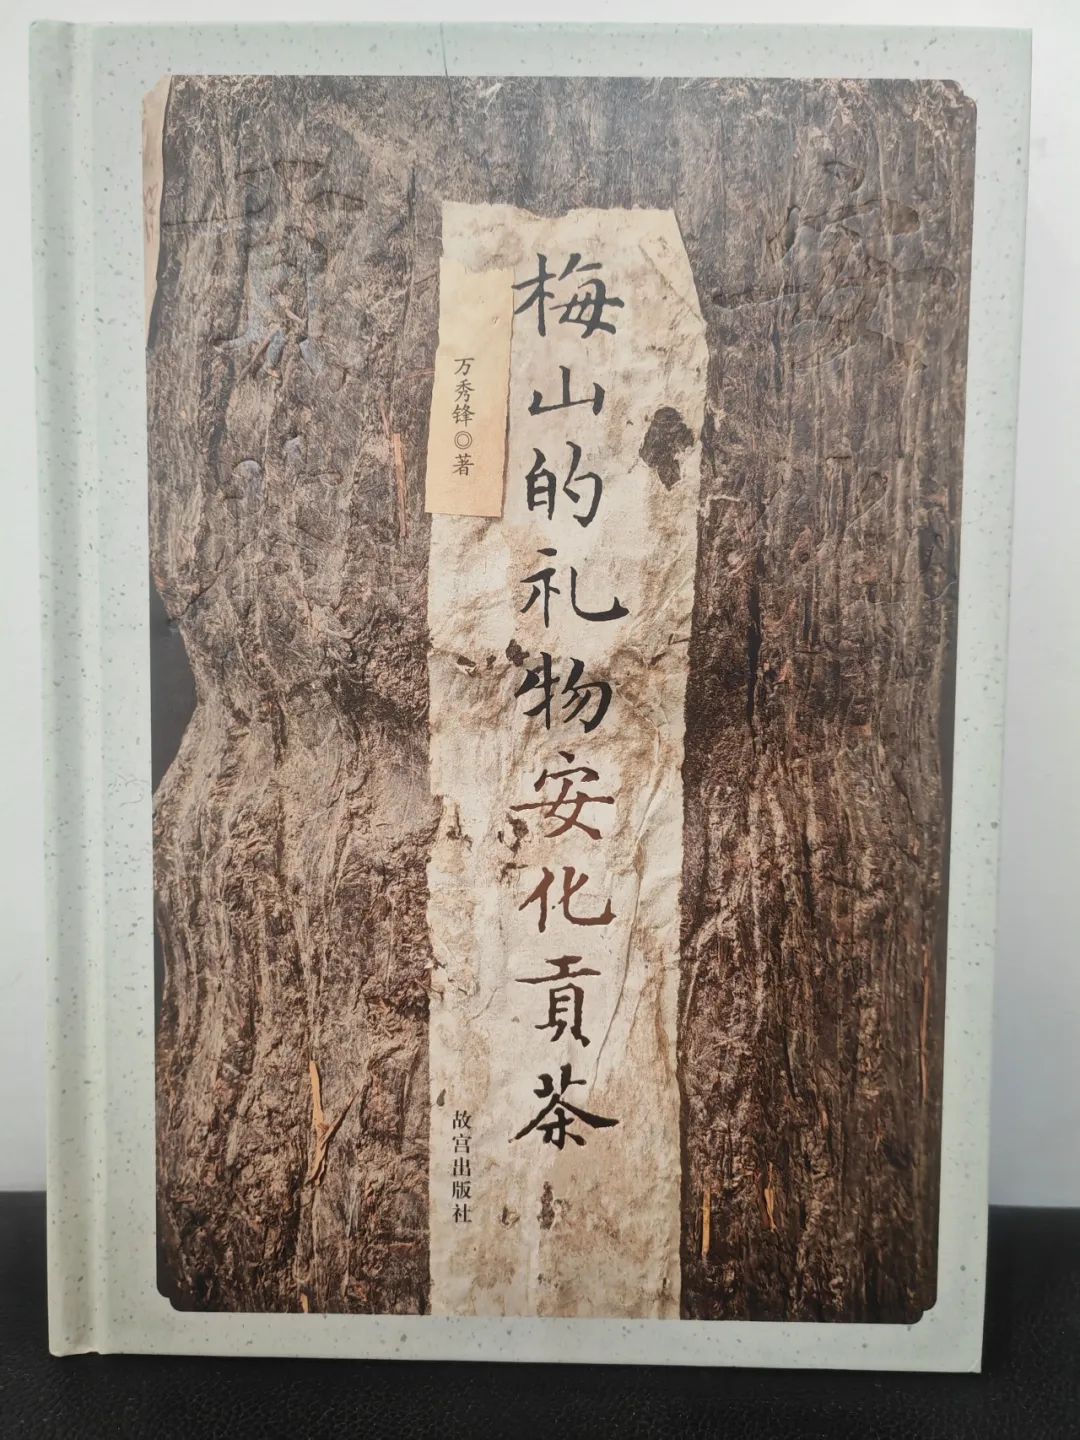 梅山的礼物安化貢茶
万秀锋◎著
故宫出版社